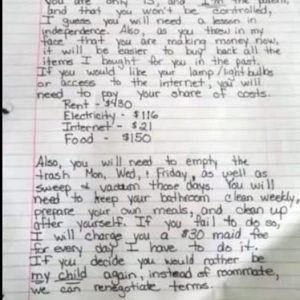 you are only 13, and I'm the parent,
and that you won't be controlled,
I guess you will need a lesson in
independence. Also, as you threw in my
face that you are making money now,
it will be easier to buy back all the
items I bought for you in the past.
If you would like your lamp/lightbulbs
or access to the internet, you will
need to pay your share of costs.
Rent - $430
Electricity - $116
Internet - $21
Food - $150
Also, you will need to empty the
trash Mon, Wed, & Friday, as well as
sweep & vacuum those days. You will
need to keep your bathroom clean weekly,
prepare your own meals, and clean up
after yourself. If you fail to do so,
I will charge you a $30 maid fee
for every day I have to do it.
If you decide you would rather be
my child again, instead of roommate,
we can renegotiate terms.